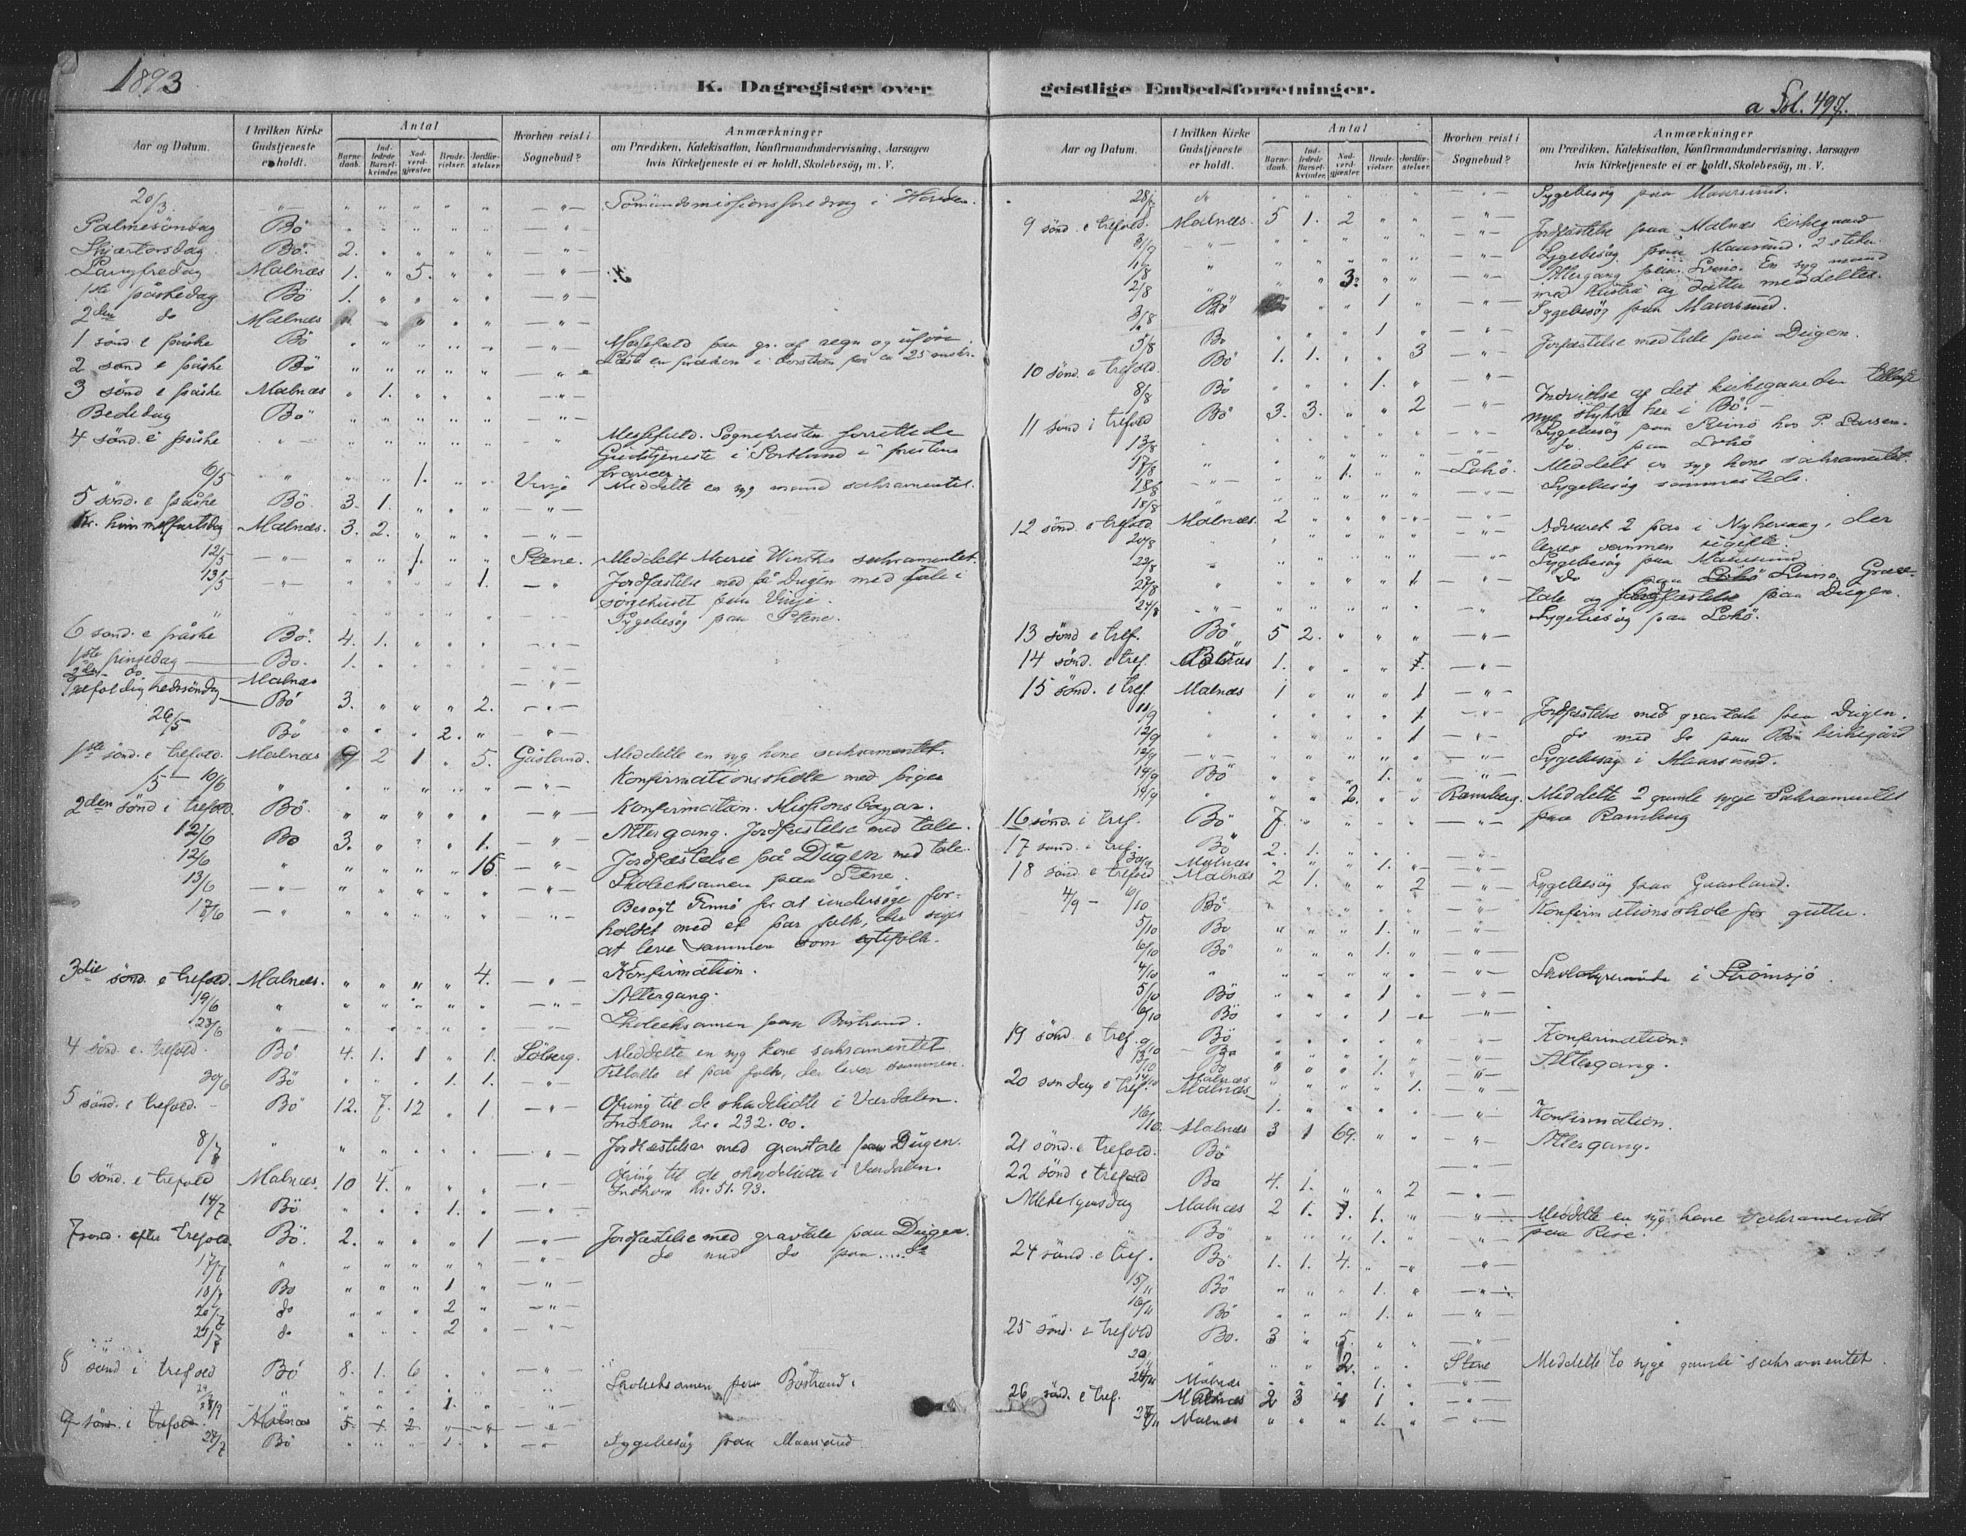 1893
K. Dagregister over
Aar og Datum.
I hvilken Kirke Gudstjeneste er holdt.
Antal
Barne-daab.
Ind-ledrede Barsel-kvinder.
Nad-verd-gjæster.
Brude-vielser.
Jordfæ-stelser.
Hvorhen reist i Sognebud?
Anmærkninger
om Prædiken, Katekisation, Konfirmandundervisning, Aarsagen
hvis Kirketjeneste ei er holdt, Skolebesøg, m. V.
20/3 " " " " " " — " — Sømandsmissionsforedrag i
Palmesöndag Bö " " " " " — " —
Skjærtorsdag Bö. 2. " " " " — " —
Langfredag Malnæs 1. " 5. " " — " —
1ste påskedag Bö 1. " " " " — " —
2den do Malnæs " " " " — " —
1 sönd e påske Bö " " " " " — " — Messefald paa gr. af regn og uföre.
2 sönd e påske Bö " " " " " — " —
3 sönd e påske Malnæs " 1. " " " — " —
Bededag Bö " " " " " — " —
4 sönd e påske " " " " " " — " — Messefald. Sognepresten forrettede
Gudstjeneste i Sortland i prestens
6/5 " " " 1. " " Vinje Meddelte en syg mand sakramentet.
5 sönd. e påske Bö 3. 1. " " " — " —
Kr. himmelfartsdag Malnæs. 3. 2. " " " — " —
12/5 — " — " " 1. " " Stene. Meddelt Marie Winther sakramentet.
13/5 — " — " " " " 1. — " — Jordfæstelse med på Dugen med tale i
sörgehuset paa Vinje.
" " Sygebesög paa Stene.
6 sönd e påske Bö. 4. 1. " " " — " —
1ste pinsedag Bö. 1. " " " " — " —
2den do Malnæs — " —
Trefoldighedssöndag Bö 3. " " " 2. — " —
26/5 Bö " " " 2. " — " —
1ste sönd. e trefold. Malnæs 9 2 1 " 5. Gåsland. Meddelte en syg kone sakramentet.
15 — 10/6 " " " " " " — " — Konfirmationsskole med piger
2den sönd i trefold. Bö. " " " " " — " — Konfirmation. Missionsbazar.
12/6 Bö 3. " " " 1. — " — Altergang. Jordfæstelse med tale.
12/6 " " " " " 15 — " — Jordfæstelse på Dugen med tale.
13/6 — " — " " " " " — " — Skoleeksamen paa Stene.
17/6 — " " " " " " " — Besögt Finnö for at undersöge for-
holdet med et par folk, der siges
at leve sammen som egtefolk.
3die sönd. e trefold. Malnæs. " " " " 4. — " — Konfirmation.
19/6 " " " " " " — " — Altergang.
23/6 " " " " " " " Skoleeksamen paa Böstrand.
4 sönd. e. trefold. Bö 4. 1. 1 " 1. Lölberg. Meddelte en syg kone sakramentet
30/6 Bö " " " 1. 1. — " — et par folk, der lever sammen.
5 sönd. i trefold. Bö 12. 7. 12 " 1 — " — Ofring til de skadelidte i Værdalen.
Indkom kr. 232.00.
8/7 " " " " " " — " — Jordfæstelse med gravtale paa Dugen.
6 sönd. e trefold Malnæs. 10 4. " " " — " — Ofring til de skadelidte i Værdalen.
Indkom kr. 51.93.
14/7 Bö " " " 1. " — " —
7 sönd. efter trefold. Bö. 2. " " " 1 — " — Jordfæstelse med gravtale paa Dugen.
17/7 " " " " " " — " — do med do paa do
18/7 Bö " " " 1 " — " —
20/7 do " " " 2 " — " —
21/7 do " " " 2 " — " —
8 sönd i trefold Bö 8. 1. 6 " " " Skoleeksamen paa Böstrand.
" " " " 1. " — " —
9 sönd. i trefold. Malnæs 5. + 2. — " —
27/7 Bö " " " 1. " — " — Sygebesög paa Maarsund.
geistlige Embedsforretninger.
a Fol. 497.
Aar og Datum.
I hvilken Kirke Gudstjeneste er holdt.
Antal
Barne-daab.
Ind-ledrede Barsel-kvinder.
Nad-verd-gjæster.
Brude-vielser.
Jordfæ-stelser.
Hvorhen reist i Sognebud?
Anmærkninger
om Prædiken, Katekisation, Konfirmandundervisning, Aarsagen
hvis Kirketjeneste ei er holdt, Skolebesøg, m. V.
28/7 " " " " " — " — Sygebesög paa Maarsund.
9 sönd e trefold. Malnæs. 5 1. 2 " " — " — Jordfæstelse paa Malnæs kirkegaard
31/7 — " — " " " " " — " — Sygebesög paa Maarsund. 2 steder.
1/8 " " " 3. " " — " — Altergang paa Svinö. En syg mand
med hustru og datter meddeltes.
2/8 " Sygebesög paa Maarsund.
3/8 Bö 1 " — " —
5/8 Bö 1 " — " — Jordfæstelse med tale paa Dugen.
10 sönd. e trefold. Bö 1. 1. " " 3 — " —
8/8 Bö 1. " — " — Indvielse af det kirkegaarden tillagte
11 sönd i trefold Bö 3. 3. " " 2 — " — nye stykke her i Bö.
13/8 Sygebesög paa Svinö hos P. Larsen.
17/8 " do paa Lokö
18/8 — " — 1. Lokö. Meddelt en syg kone sakramentet
18/8 " Sygebesög sammesteds.
12 sönd e trefold. Malnæs. 2 " " " " — " — Advaret 2 par i Nyhevaag, der
20/8 " lever sammen ugifte.
22/8 " Sygebesög paa Maarsund
22/8 " 1 do paa Svinö. Grav-
tale og jordfæstelse paa Dugen.
24/8 — " — Sygebesög paa Lokö.
13 sönd e tref. Bö 5 2. " " " — " —
14 sönd. e tref. Malnæs 1. " " " 1. — " —
15 sönd. e tref. Malnæs 1 " " " 1 — " —
11/9 " " " " " 1 — " — Jordfæstelse med gravtale paa Dugen.
12/9 " " " " " 1 — " — do med do paa Bö kirkegård
12/9 — " — Sygebesög i Maarsund.
14/9 Bö " " " 1. " — " —
14/9 " " " 2. " " Ramberg. Meddelte 2 gamle syge Sakramentet
16 sönd. i tref. Bö 7. " " " " — " — paa Ramberg
17 sönd. i tref. Bö 2. 1. " " " — " —
30/9 Malnæs " " " 1. " — " —
18 sönd e trefold Malnæs 2 1. " " 2 — " — Sygebesög paa Gaasland.
4/9 — 6/10 Bö " " " " " — " — Konfirmationsskole for gutter.
5/10 Bö " " " 1. " — " —
6/10 Bö " " " 1. " — " —
4/10 " " " " " " — " — i Strömsjö
5/10 Bö " " " 1 " — " —
6/10 Bö " " " 1 — " —
19 sönd. e tref. Bö — " — Konfirmation.
9/10 Bö " Altergang.
13/10 do " " " 1. " — " —
14/10 Malnæs
20 söndag e tref. Malnæs " " " " 1. — " — Konfirmation.
16/10. Malnæs 3 1 69. " " — " — Altergang.
21 sönd. e trefold. Bö
22 sönd e trefold Bö 4. 1. " " 2 — " —
Allehelgensdag Malnæs 2 1. 1. 1. " — " — Meddelte en syg kone Sakramentet
" Bö " " " 1. " — " — paa Rise.
24 sönd. e tref. Bö 1. 1. 4. " " — " —
15/11 Bö " " " 1. " — " —
16/11 Bö " " " 1. " "
25 sönd. i trefold Bö. 3 " 5. " " — " —
20/11 " " " 2. " " Stene Meddelte to syge gamle sakramentet.
24/11 Malnæs " " " 1. " — " —
26 sönd. e tref. Malnæs 2 3 4 1 " — " —
27/11 Malnæs " " " 1. " — " —